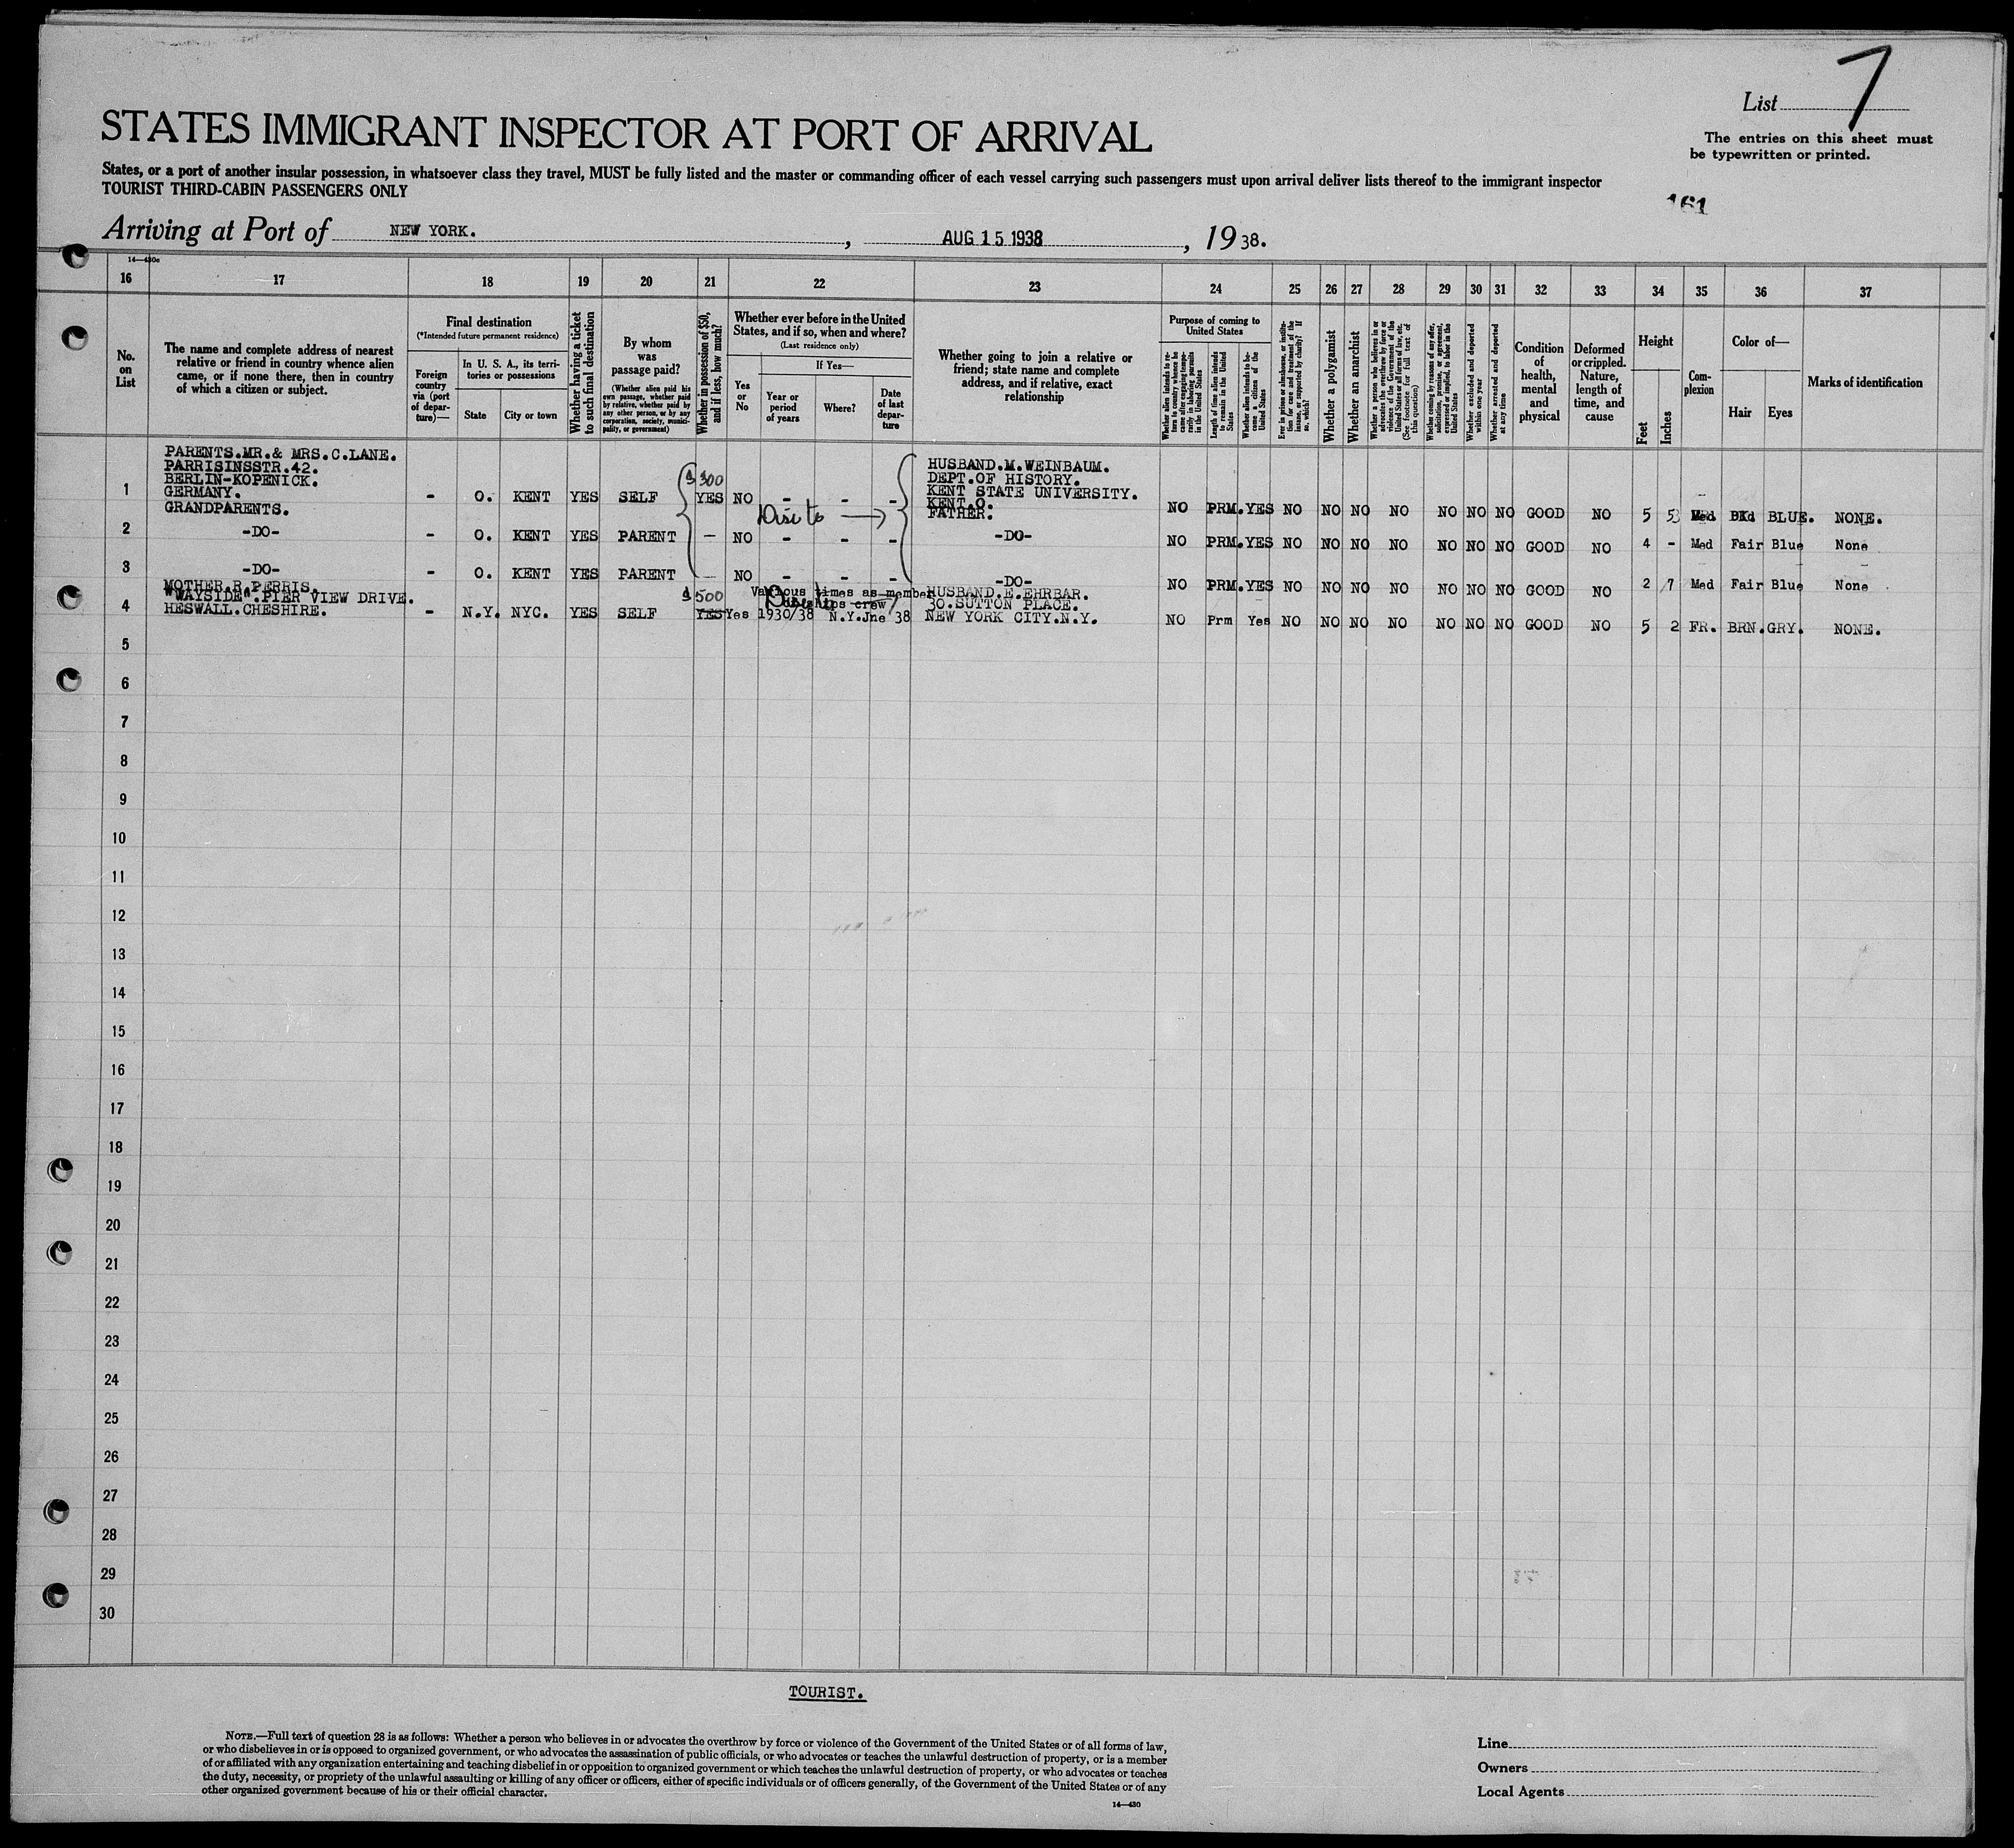 List 7
STATES IMMIGRANT INSPECTOR AT PORT OF ARRIVAL
The entries on this sheet must
be typewritten or printed.
States, or a port of another insular possession, in whatsoever class they travel, MUST be fully listed and the master or commanding officer of each vessel carrying such passengers must upon arrival deliver lists thereof to the immigrant inspector
TOURIST THIRD-CABIN PASSENGERS ONLY
161
Arriving at Port of NEW YORK. , AUG 15 1938 , 19 38.
14—430c
16 17 18 19 20 21 22 23 24 25 26 27 28 29 30 31 32 33 34 35 36 37
No.
on
List
The name and complete address of nearest
relative or friend in country whence alien
came, or if none there, then in country
of which a citizen or subject.
Final destination
(*Intended future permanent residence)
Foreign
country
via (port
of depar-
ture)—
In U. S. A., its terri-
tories or possessions
State
City or town
Whether having a ticket
to such final destination
By whom
was
passage paid?
(Whether alien paid his
own passage, whether paid
by relative, whether paid by
any other person, or by any
corporation, society, munici-
pality, or government)
Whether in possession of $50,
and if less, how much?
Whether ever before in the United
States, and if so, when and where?
(Last residence only)
Yes
or
No
If Yes—
Year or
period
of years
Where?
Date
of last
depar-
ture
Whether going to join a relative or
friend; state name and complete
address, and if relative, exact
relationship
Purpose of coming to
United States
Whether alien intends to re-
turn to country whence he
came after engaging tempo-
rarily in laboring pursuits
in the United States
Length of time alien intends
to remain in the United
States
Whether alien intends to be-
come a citizen of the
United States
Ever in prison or almshouse, or institu-
tion for care and treatment of the
insane, or supported by charity? If
so, which?
Whether a polygamist
Whether an anarchist
Whether a person who believes in or
advocates the overthrow by force or
violence of the Government of the
United States or all forms of law, etc.
(See footnote for full text of
this question)
Whether coming by reason of any offer,
solicitation, promise, or agreement,
expressed or implied, to labor in the
United States
Whether excluded and deported
within one year
Whether arrested and deported
at any time
Condition
of
health,
mental
and
physical
Deformed
or crippled.
Nature,
length of
time, and
cause
Height
Feet
Inches
Com-
plexion
Color of—
Hair
Eyes
Marks of identification
PARENTS.MR.& MRS.C.LANE.
PARRISINSSTR.42.
BERLIN-KOPENICK.
GERMANY.
1 - O. KENT YES SELF $300 YES NO - - -
HUSBAND.M.WEINBAUM.
DEPT.OF HISTORY.
KENT STATE UNIVERSITY.
KENT.O.
NO PRM. YES NO NO NO NO NO NO NO GOOD NO 5 Med BLUE. NONE.
GRANDPARENTS.
FATHER.
2 -DO- - O. KENT YES PARENT — NO - - - -DO- NO PRM. YES NO NO NO NO NO NO NO GOOD NO 4 - Med Fair Blue None
3 -DO- - O. KENT YES PARENT — NO - - - -DO- NO PRM. YES NO NO NO NO NO NO NO GOOD NO 2 7 Med Fair Blue None
MOTHER.R.PERRIS.
"WAYSIDE".PIER VIEW DRIVE.
HESWALL.CHESHIRE.
4 - N.Y. NYC. YES SELF $500 YES Yes
Various times as member
ships crew
1930/38 N.Y. Jne 38
HUSBAND.E.EHRBAR.
30.SUTTON PLACE.
NEW YORK CITY.N.Y.
NO Prm Yes NO NO NO NO NO NO NO GOOD NO 5 2 FR. BRN. GRY. NONE.
5
6
7
8
9
10
11
12
13
14
15
16
17
18
19
20
21
22
23
24
25
26
27
28
29
30
TOURIST.
NOTE.—Full text of question 28 is as follows: Whether a person who believes in or advocates the overthrow by force or violence of the Government of the United States or of all forms of law,
or who disbelieves in or is opposed to organized government, or who advocates the assassination of public officials, or who advocates or teaches the unlawful destruction of property, or is a member
of or affiliated with any organization entertaining and teaching disbelief in or opposition to organized government or which teaches the unlawful destruction of property, or who advocates or teaches
the duty, necessity, or propriety of the unlawful assaulting or killing of any officer or officers, either of specific individuals or of officers generally, of the Government of the United States or of any
other organized government because of his or their official character.
14—430
Line
Owners
Local Agents